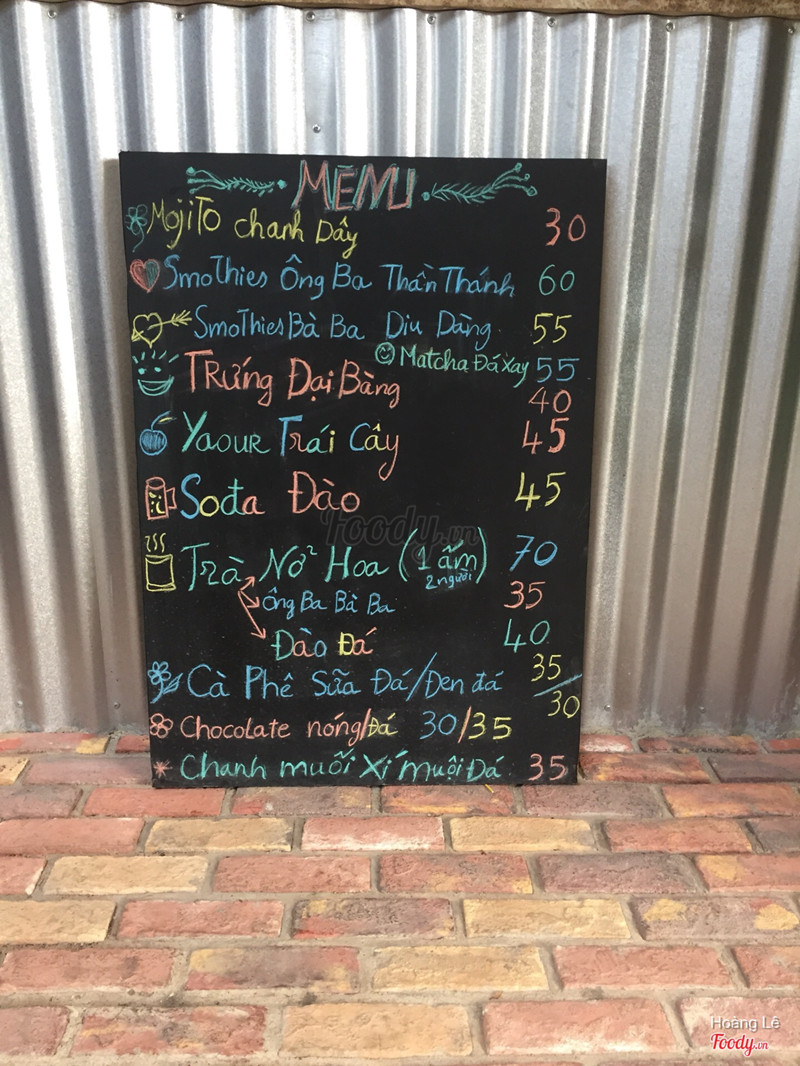 MENU
Mojito chanh Dây 30
Smothies Ông Ba Thần Thánh 60
Smothies Bà Ba Dịu Dàng 55
Matcha Đá Xay 55
Trứng Đại Bàng 40
Yaour Trái Cây 45
Sođa Đào 45
Foody.vn
Trà Nở² Hoa (1 ấm) 70
2 người
Ông Ba Bà Ba 35
Đào Đá 40
Cà Phê Sữa Đá/Đen đá 35/30
Chocolate nóng/đá 30/35
Chanh muối Xí muội Đá 35
Hoàng Lê
Foody.vn